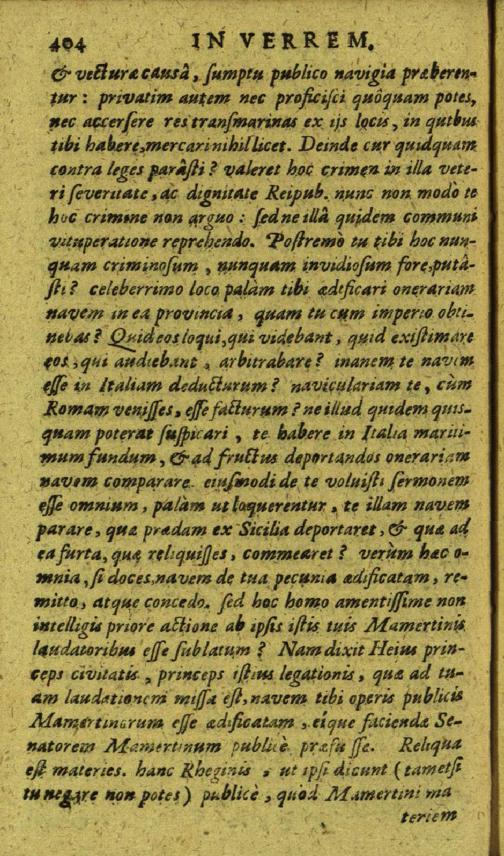 404 IN VERREM.
& vecturæ causâ, sumptu publico navigia præberen-
tur : privatim autem nec proficisci quôquam potes,
nec accersere res transmarinas ex ijs locis, in quibus
tibi habere, mercari nihil licet. Deinde cur quidquam
contra leges parâsti ? valeret hoc crimen in illa vete-
ri severitate, ac dignitate Reipub. nunc non modò te
hoc crimine non arguo : sed ne illâ quidem communi
vituperatione reprehendo. Postremò tu tibi hoc nun-
quam criminosum, nunquam invidiosum fore, putâ-
sti ? celeberrimo loco palàm tibi ædificari onerariam
navem in ea provincia, quam tu cum imperio obti-
nebas ? Quid eos loqui, qui videbant, quid existimare
eos, qui audiebant, arbitrabare ? inanem te navem
esse in Italiam deducturum ? naviculariam te, cùm
Romam venisses, esse facturum ? ne illud quidem quis-
quam poterat suspicari, te habere in Italia mariti-
mum fundum, & ad fructus deportandos onerariam
navem comparare. eiusmodi de te voluisti sermonem
esse omnium, palàm ut loquerentur, te illam navem
parare, quæ prædam ex Sicilia deportaret, & quæ ad
ea furta, quæ reliquisses, commearet ? verùm hæc o-
mnia, si doces, navem de tua pecunia ædificatam, re-
mitto, atque concedo. sed hoc homo amentissime non
intelligis priore actione ab ipsis istis tuis Mamertinis
laudatoribus esse sublatum ? Nam dixit Heius prin-
ceps civitatis, princeps istius legationis, quæ ad tu-
am laudationem missa est, navem tibi operis publicis
Mamertinorum esse ædificatam, eique faciendæ Se-
natorem Mamertinum publicè præfuisse. Reliqua
est materies. hanc Rheginis, ut ipsi dicunt (tametsi
tu negare non potes) publicè, quòd Mamertini ma
teriem